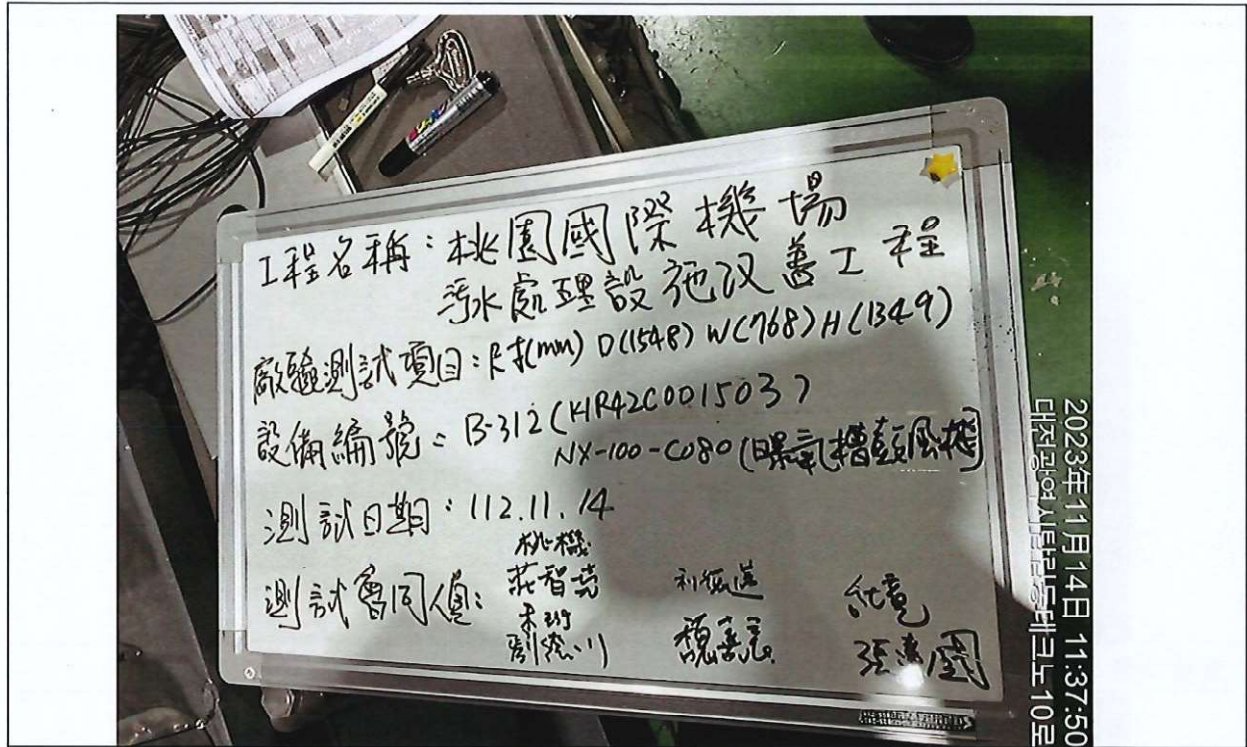 工程名稱：桃園國際機場
污水處理設施改善工程
廠驗測試項目：尺寸(mm) D(1548) W(768) H(1349)
設備編號：B-312 (KR42C001503)
NX-100-C080 (曝氣槽鼓風機)
測試日期：112.11.14
測試會同人員：
桃機
莊智
2023年11月14日 11:37:50
대전광역시탑립동테크노10로